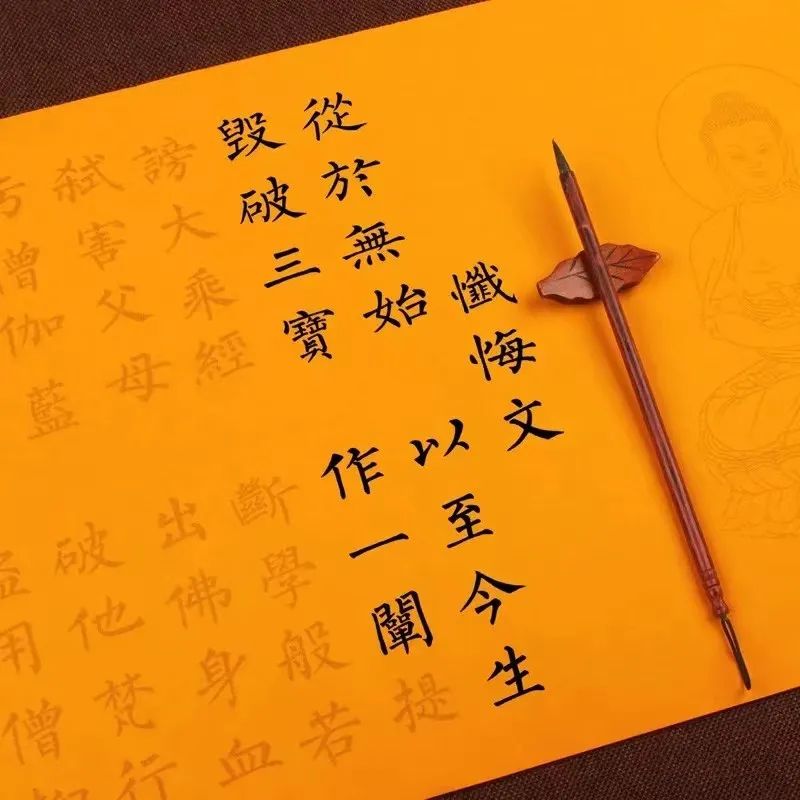 懺悔文
從於無始 以至今生
毀破三寶 作一闡提
謗大乘經 斷學般若
弒害父母 出佛身血
僧伽藍 破他梵行
用僧